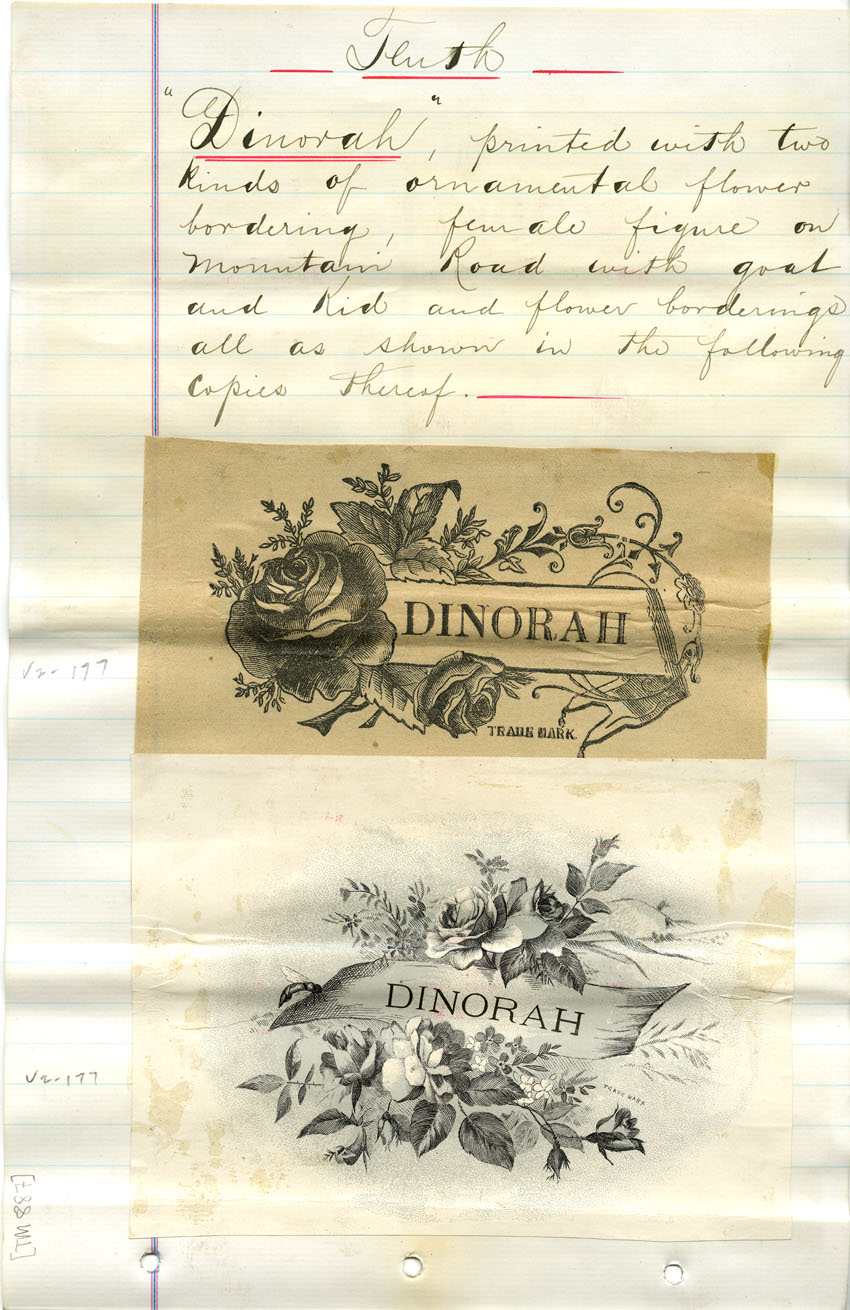 Tenth
"Dinorah", printed with two
kinds of ornamental flower
bordering, female figure on
Mountain Road with goat
and Kid and flower borderings
all as shown in the following
Copies thereof.
DINORAH
TRADE MARK.
V2-177
DINORAH
TRADE MARK
V2-177
[TM 887]